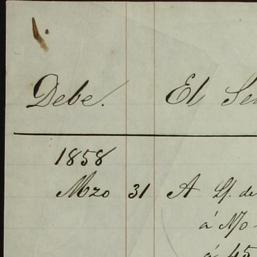 Debe. El Se
1858
Mzo 31 A Lf. de
á N/o
á 45